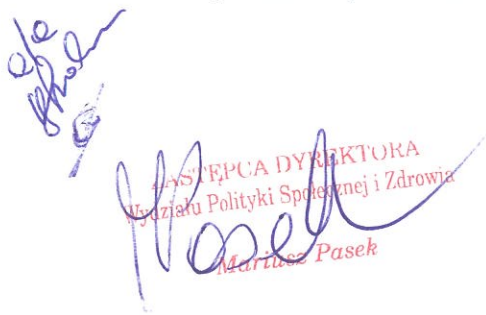 a/a
ZASTĘPCA DYREKTORA
Wydziału Polityki Społecznej i Zdrowia
Mariusz Pasek